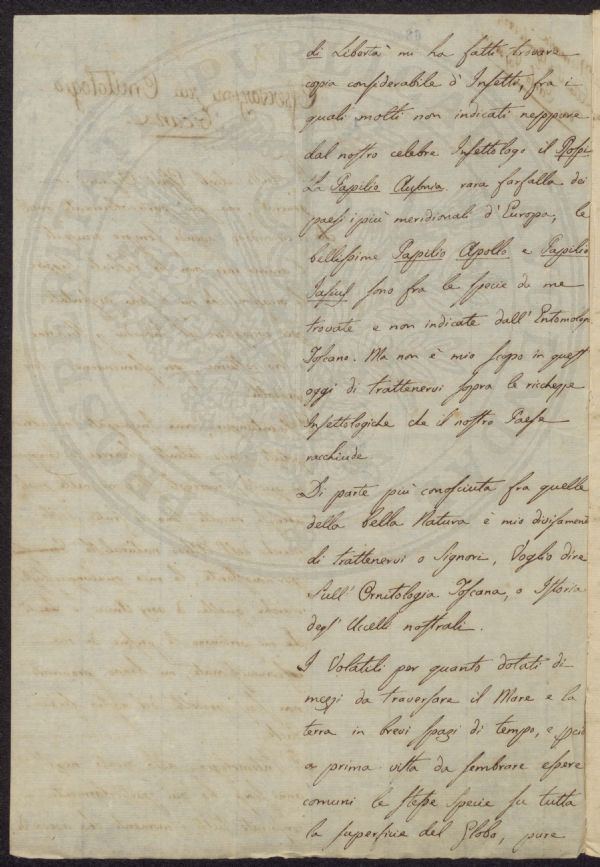 di Libertà mi ha fatti trovare
copia considerabile d'Insetti, fra i
quali molti non indicati neppure
dal nostro celebre Insettologo il Rossi
La Papilio Ausonia rara farfalla dei
paesi i più meridionali d'Europa, le
bellissime Papilio Apollo e Papilio
Jasius sono fra le specie da me
trovate e non indicate dall'Entomologo
Toscano. Ma non è mio scopo in quest'
oggi di trattenervi sopra le ricchezze
Insettologiche che il nostro Paese
racchiude
Di parte più conosciuta fra quelle
della bella Natura è mio divisamento
di trattenervi o Signori, Voglio dire
sull'Ornitologia Toscana, o Istoria
degl'Uccelli nostrali.
I Volatili per quanto dotati di
mezzi da traversare il Mare e la
terra in brevi spazi di tempo, e
a prima vista da sembrare essere
comuni le stesse specie su tutta
la superficie del Globo, pure